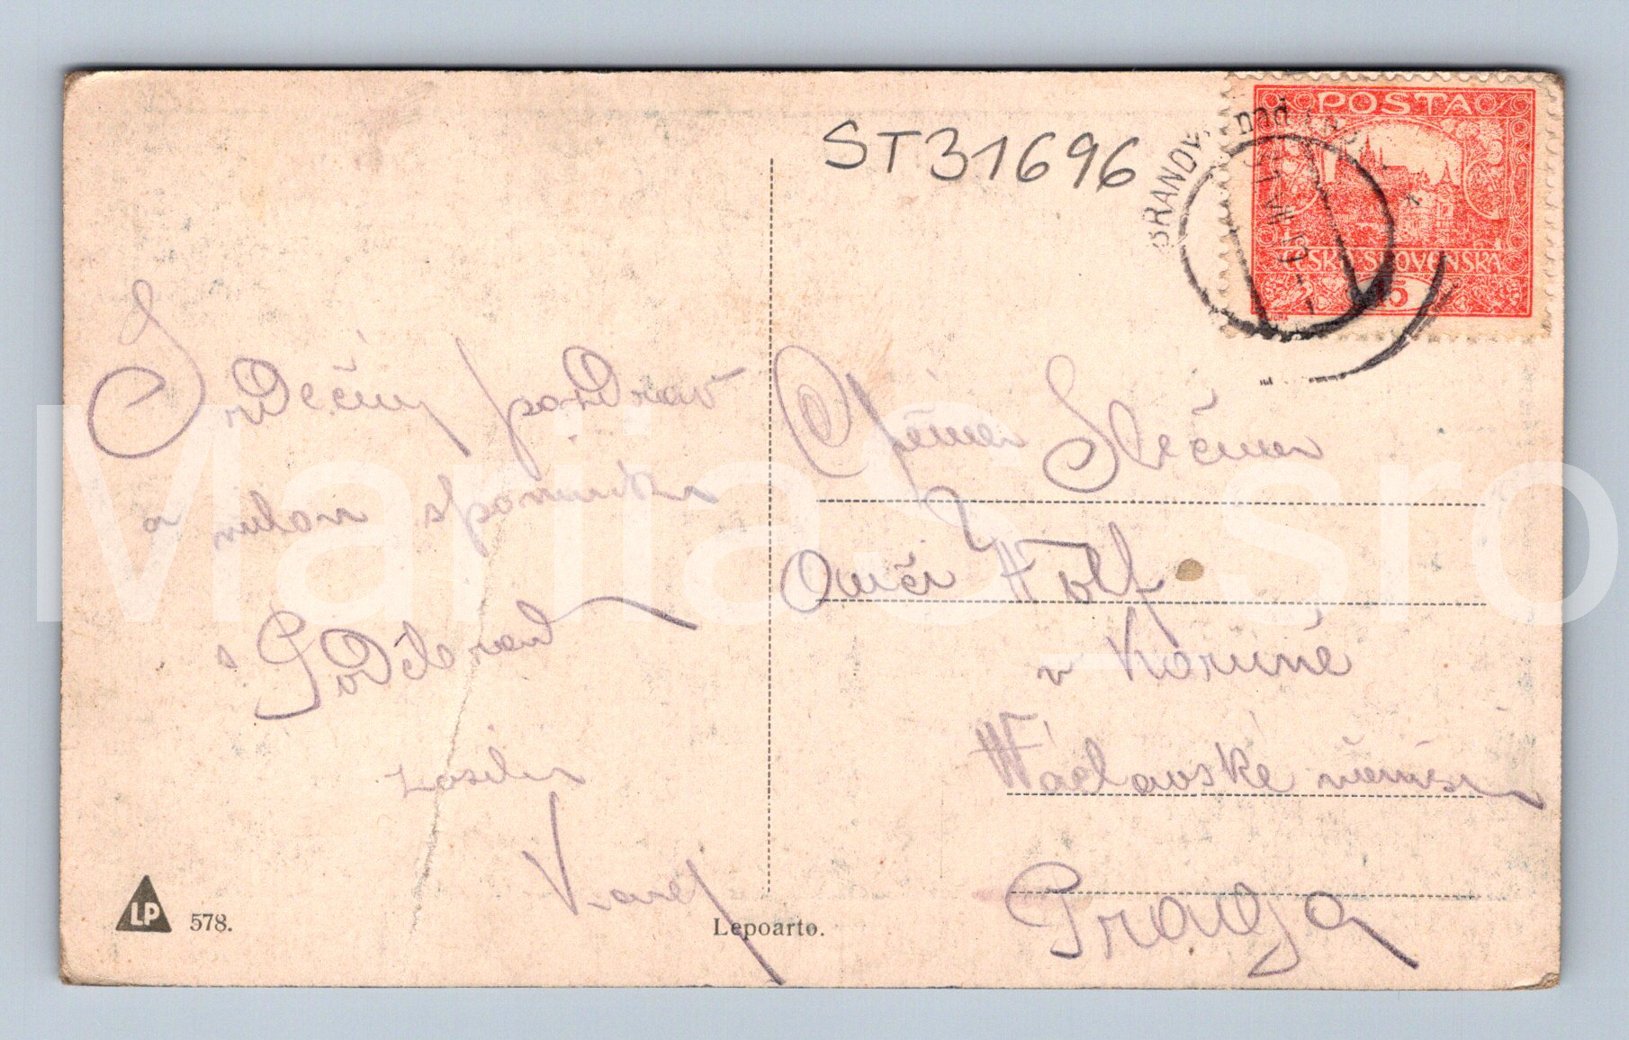 ST31696
POSTA
ČESKO-SLOVENSKÁ
15
BRANDÝS nad
Srdečný pozdrav
a milou spomínku
s Poděbrad
zasílá
Karel
Slečna
Wolf
v Koruně
Václavské náměstí
Praha
LP 578.
Lepoarto.
MariaS_sro